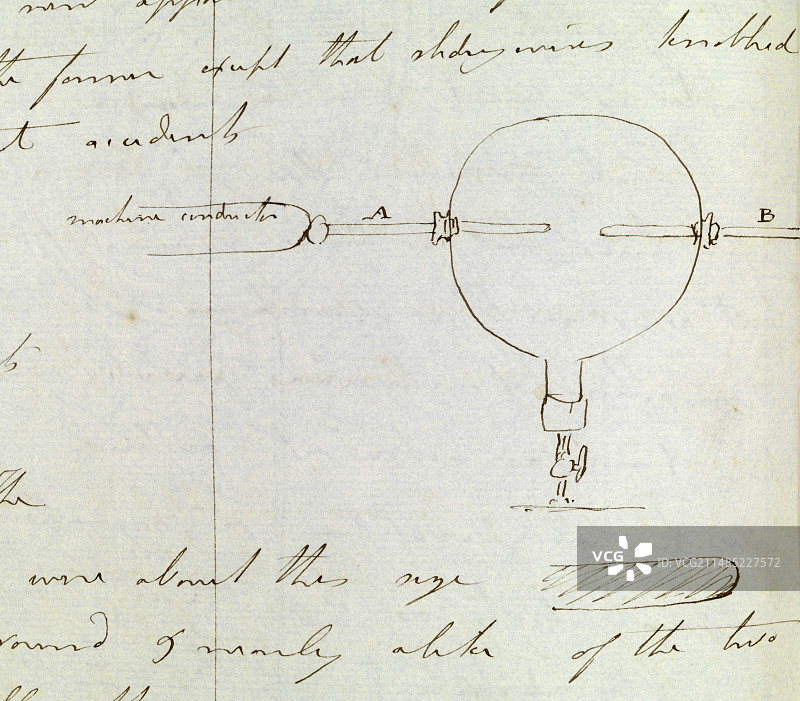 new
the former except that sliding wires knobbed
t accidents
machine conductor
A
B
the
were about this size
round & nearly alike of the two
VCG
ID:VCG211485227572